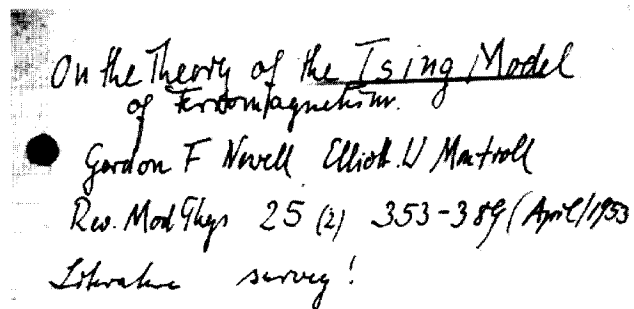 On the Theory of the Ising Model
of Ferromagnetism.
Gordon F Newell Elliott W Montroll
Rev. Mod Phys 25 (2) 353-389 (April/1953
Literature survey!